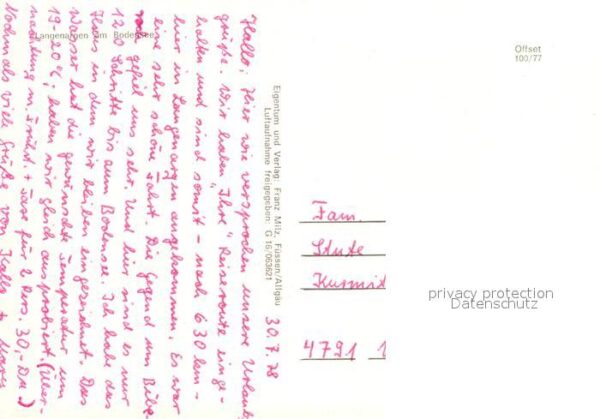 Langenargen am Bodensee
Hallo, Hier wie versprochen unsere Urlaub
grüße. Wir haben "Ihre" Reiseroute einge-
halten und sind somit - nach 630 km -
hier in Langenargen angekommen. Es war
eine sehr schöne Fahrt. Die Gegend um
gefiel uns sehr. Und hier sind es nur
120 Schritte bis zum Bodensee. Ich habe das
Haus in dem wir bleiben eingezeichnet. Das
Wasser hat die gewünschte Temperatur um
19-20°C, haben wir gleich ausprobiert. (Über-
nachtung m. Frühst. + Taxe für 2 Pers. 30,- DM)
Nochmals viele Grüße von
30.7.78
Eigentum und Verlag: Franz Milz, Füssen/Allgäu
Luftaufnahme freigegeben: G 16/063621
Offset
100/77
Fam.
Stute
4791 1
privacy protection
Datenschutz